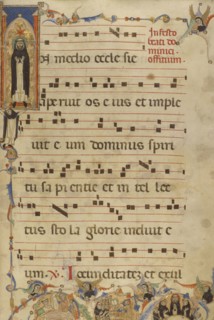 In festo
beati do
minici
officium.
n medio eccle sie
aperuit os e ius et imple
uit e um dominus spiri
tu sa pi entie et in tel lec
tus sto la glorie induit e
um. Iocunditatez et exul